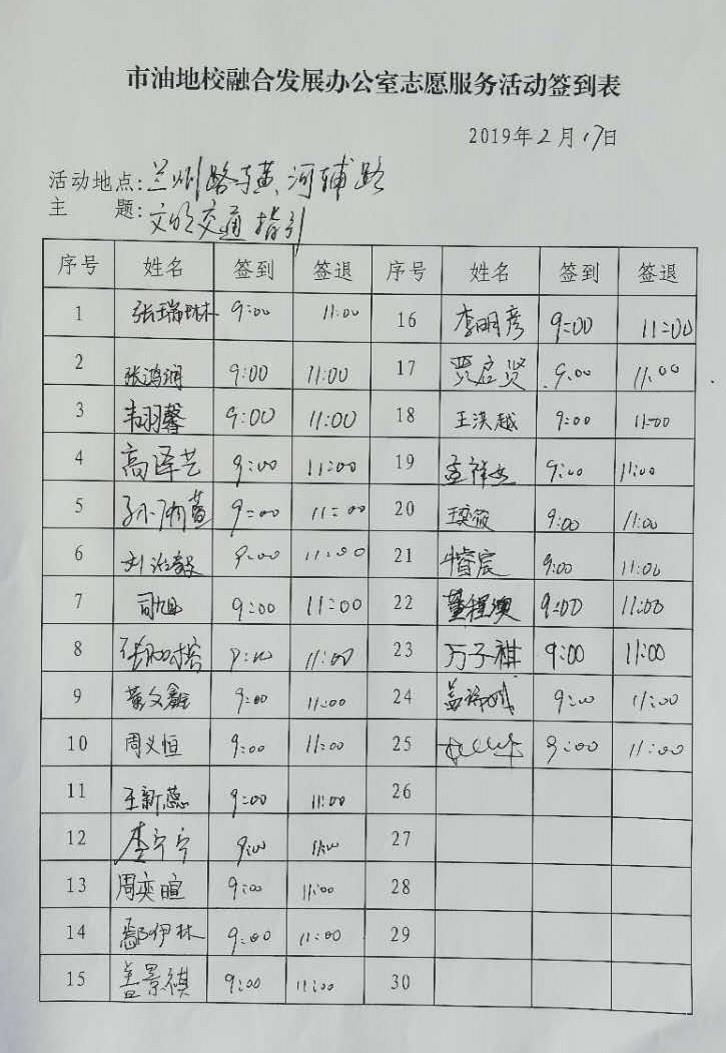 市油地校融合发展办公室志愿服务活动签到表
2019年2月17日
活动地点:兰州路与黄河辅路
主 题:文明交通指引
序号 姓名 签到 签退 序号 姓名 签到 签退
1 张瑞琳 9:00 11:00 16 李明彦 9:00 11:00
2 张鸿润 9:00 11:00 17 贾启贤 9:00 11:00
3 韦羽馨 9:00 11:00 18 王洪越 9:00 11:00
4 高泽艺 9:00 11:00 19 孟祥 9:00 11:00
5 9:00 11:00 20 王奕筱 9:00 11:00
6 刘治毅 9:00 11:00 21 牛睿宸 9:00 11:00
7 司旭 9:00 11:00 22 董程澳 9:00 11:00
8 11:00 23 万子祺 9:00 11:00
9 黄文鑫 9:00 11:00 24 9:00 11:00
10 周义恒 9:00 11:00 25 9:00 11:00
11 王新蕊 9:00 11:00 26
12 李宁宁 9:00 11:00 27
13 周奕暄 9:00 11:00 28
14 鄢伊林 9:00 11:00 29
15 景祺 9:00 11:00 30